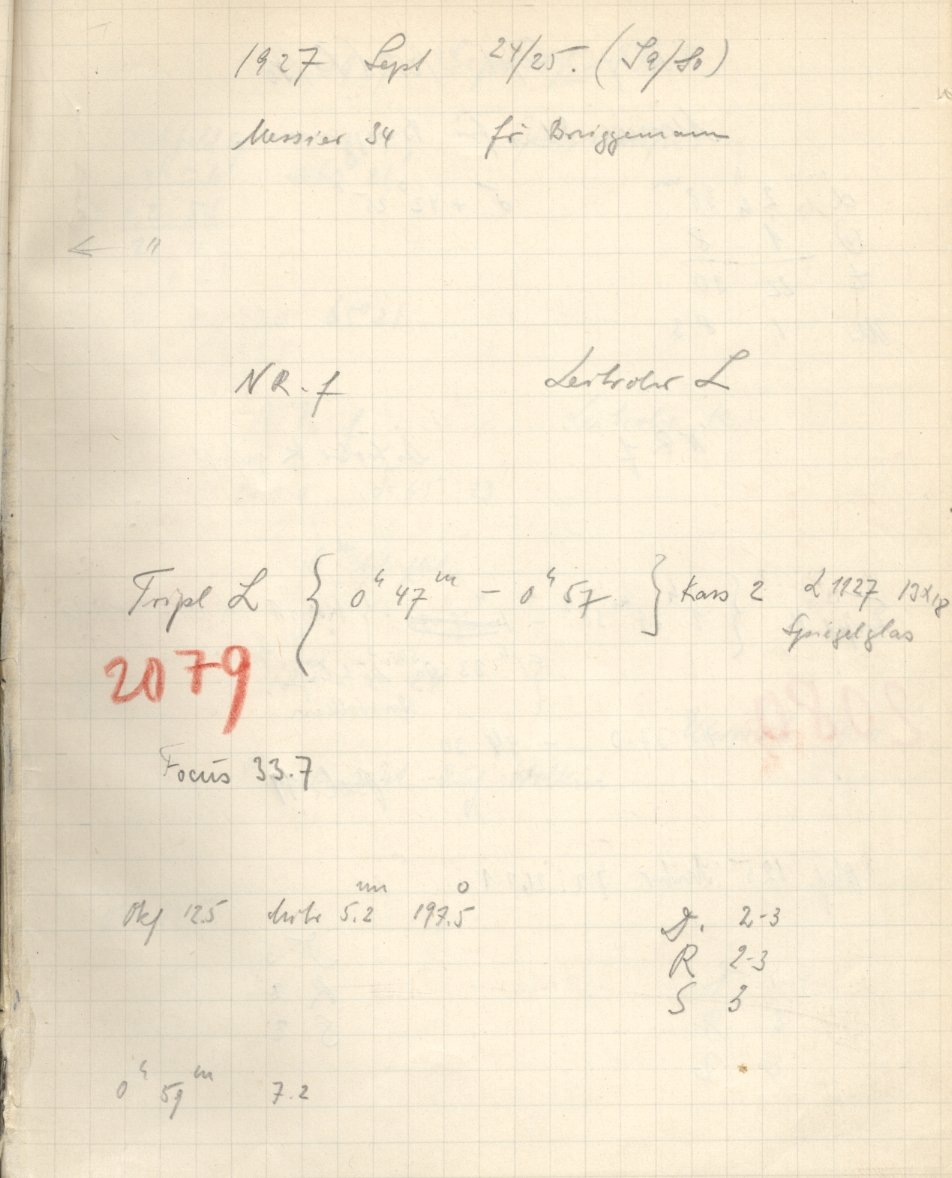 1927 Sept 24/25. (Sa/So)
Messier 34 für Brüggemann
← "
NR. f Leitrohr L
Tripl L { 0h 47m - 0h 57 } Kass 2 1927
Spiegelglas
2079
Focus 33.7
Okl 12.5 Mitte 5.2 mm 197.5°
D. 2-3
R 2-3
S 3
0h 59m 7.2